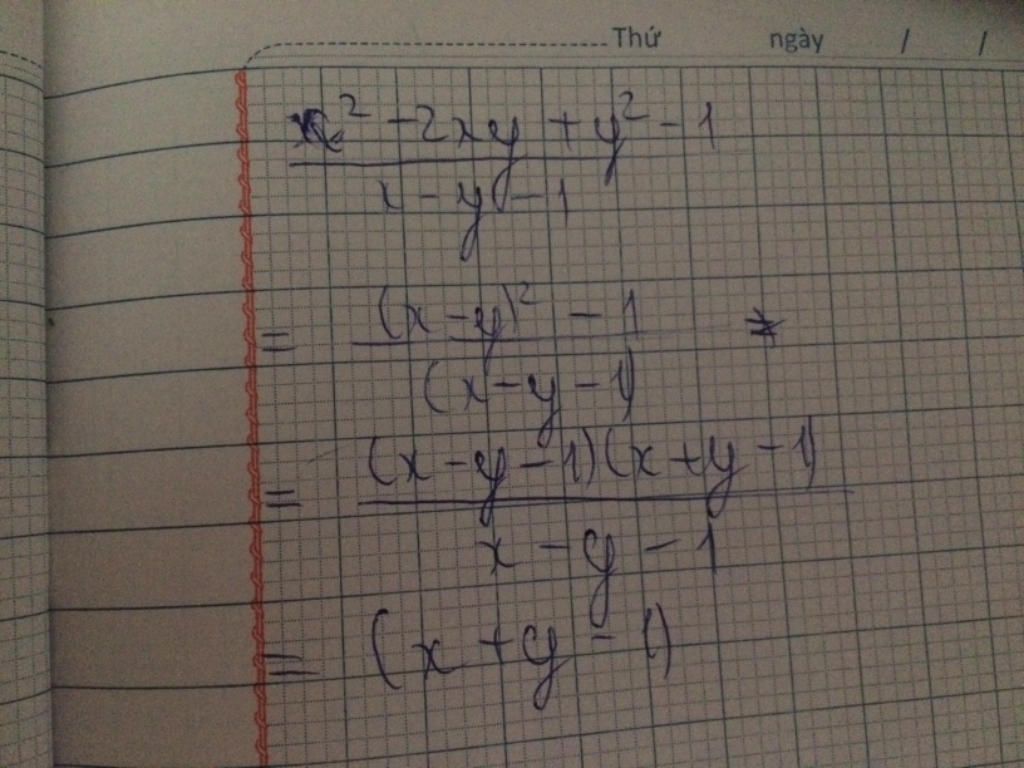 Thứ ngày / /
x² - 2xy + y² - 1
x - y - 1
= (x - y)² - 1
(x - y - 1)
= (x - y - 1)(x + y - 1)
x - y - 1
= (x + y - 1)